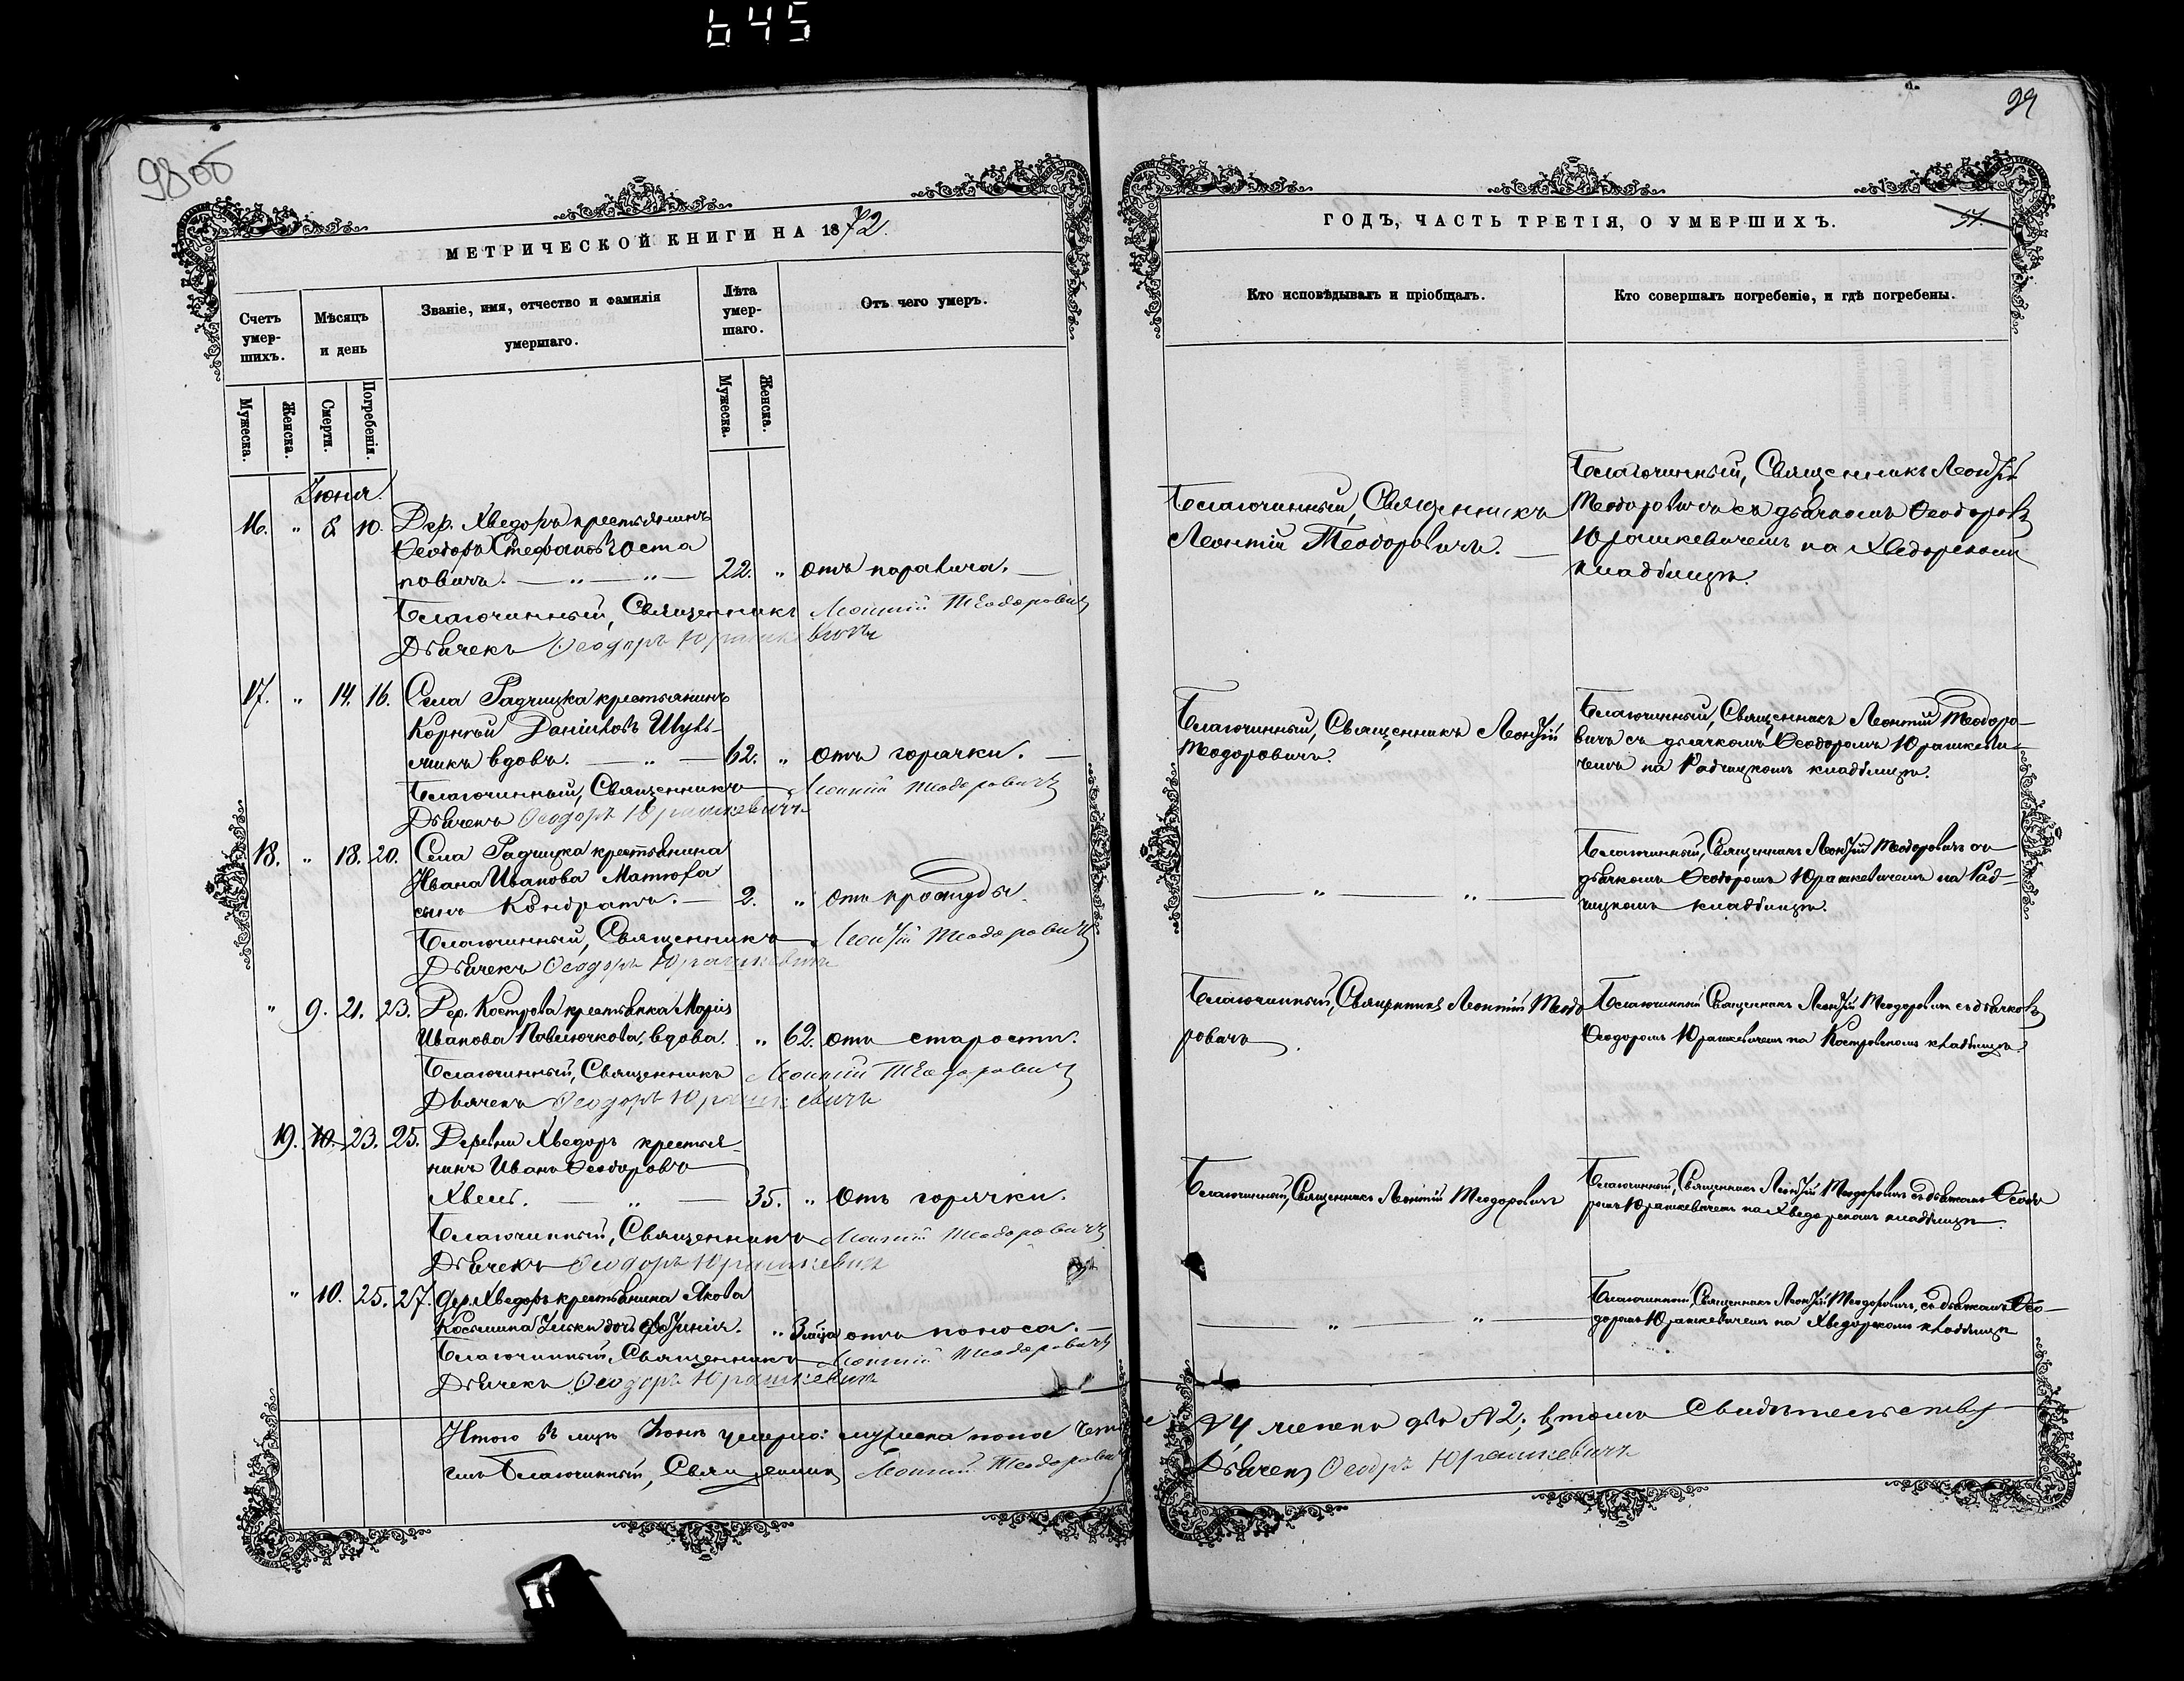 645
98об
99
МЕТРИЧЕСКОЙ КНИГИ НА 1872.
Счетъ умер-шихъ.
Мѣсяцъ и день
Званіе, имя, отчество и фамилія умершаго.
Лѣта умер-шаго.
Отъ чего умеръ.
Мужеска.
Женска.
Смерти.
Погребенія.
Мужеска.
Женска.
Іюня.
16. " 8 10. Дер. Хведоръ крестьянинъ
Ѳеодоръ Стефановъ Оста
повичъ. — " — " — 22. " отъ паралича. —
Благочинный, Священникъ Леонтій Теодоровичъ
Дьячекъ Ѳеодоръ Юрашкевичъ
17. " 14. 16. Села Радчицка крестьянинъ
Корнѣй Даніиловъ
вдовъ. — " — 62. " отъ горячки. —
Благочинный, Священникъ Леонтій Теодоровичъ
Дьячекъ Ѳеодоръ Юрашкевичъ
18. " 18. 20. Села Радчицка крестьянина
Ивана Иванова
сынъ Кондратъ. — 2. " отъ простуды.
Благочинный, Священникъ Леонтій Теодоровичъ
Дьячекъ Ѳеодоръ Юрашкевичъ
" 9. 21. 23. Дер. Кострова крестьянка Марія
Иванова Павлючкова, вдова. " 62. отъ старости.
Благочинный, Священникъ Леонтій Теодоровичъ
Дьячекъ Ѳеодоръ Юрашкевичъ
19. 10. 23. 25. Деревни Хведоръ крестья-
нинъ Иванъ Ѳеодоровъ
— " — 35. " Отъ горячки.
Благочинный, Священникъ Леонтій Теодоровичъ
Дьячекъ Ѳеодоръ Юрашкевичъ
" 10. 25. 27. Дер. Хведоръ крестьянина Якова
Косьмина дочь " 3 отъ поноса. —
Благочинный, Священникъ Леонтій Теодоровичъ
Дьячекъ Ѳеодоръ Юрашкевичъ
Итого въ Іюнѣ умерло: мужеска пола
Благочинный, Священникъ Леонтій Теодоровичъ
ГОДЪ, ЧАСТЬ ТРЕТІЯ, О УМЕРШИХЪ.
51.
Кто исповѣдывалъ и пріобщалъ.
Кто совершалъ погребеніе, и гдѣ погребены.
Благочинный, Священникъ
Леонтій Теодоровичъ. —
Благочинный, Священникъ Леонтій
Теодоровичъ съ дьячкомъ Ѳеодоромъ
Юрашкевичемъ на Хведорскомъ
кладбищѣ.
Благочинный, Священникъ Леонтій
Теодоровичъ.
Благочинный, Священникъ Леонтій Теодоро-
вичъ съ дьячкомъ Ѳеодоромъ Юрашкеви-
чемъ на Радчицкомъ кладбищѣ.
— " — " —
Благочинный, Священникъ Леонтій Теодоровичъ съ
дьячкомъ Ѳеодоромъ Юрашкевичемъ на Рад-
чицкомъ кладбищѣ.
Благочинный, Священникъ Леонтій Теодо
ровичъ.
Благочинный Священникъ Леонтій Теодоровичъ съ дьячкомъ
Ѳеодоромъ Юрашкевичемъ на Костровскомъ кладбищѣ.
Благочинный, Священникъ Леонтій Теодоровичъ
Благочинный, Священникъ Леонтій Теодоровичъ съ дьячкомъ Ѳеодо
ромъ Юрашкевичемъ на Хведорскомъ кладбищѣ.
— " — " —
Благочинный, Священникъ Леонтій Теодоровичъ, съ дьячкомъ Ѳео-
доромъ Юрашкевичемъ на Хведорскомъ кладбищѣ
№ 4, женска два № 2; въ томъ свидѣтельствую
Дьячекъ Ѳеодоръ Юрашкевичъ